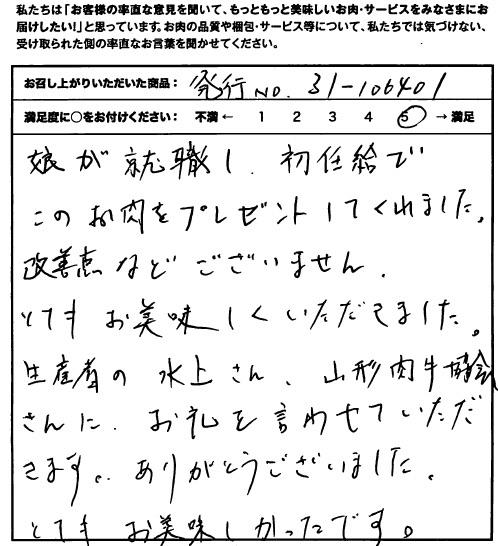 私たちは「お客様の率直な意見を聞いて、もっともっと美味しいお肉・サービスをみなさまにお
届けしたい!」と思っています。お肉の品質や梱包・サービス等について、私たちでは気づけない、
受け取られた側の率直なお言葉を聞かせてください。
お召し上がりいただいた商品: 発行NO. 31-106401
満足度に○をお付けください: 不満 ← 1 2 3 4 5 → 満足
娘が就職し、初任給で
このお肉をプレゼントしてくれました。
改善点などございません。
とてもお美味しくいただきました。
生産者の水上さん、山形肉牛協会
さんに、お礼を言わせていただ
きます。ありがとうございました。
とてもお美味しかったです。